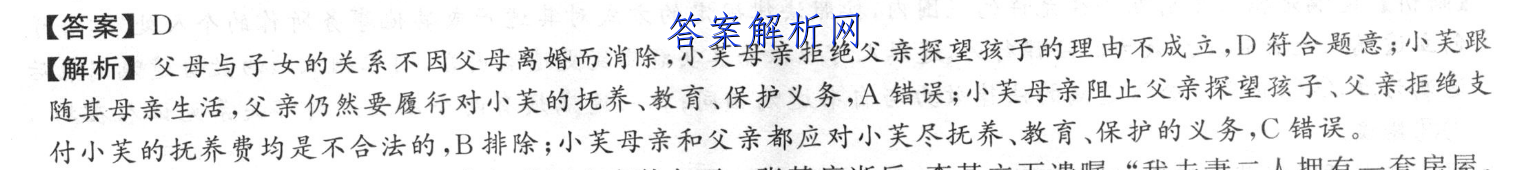 【答案】D
答案解析网
【解析】父母与子女的关系不因父母离婚而消除,小芙母亲拒绝父亲探望孩子的理由不成立,D符合题意;小芙跟
随其母亲生活,父亲仍然要履行对小芙的抚养、教育、保护义务,A错误;小芙母亲阻止父亲探望孩子、父亲拒绝支
付小芙的抚养费均是不合法的,B排除;小芙母亲和父亲都应对小芙尽抚养、教育、保护的义务,C错误。